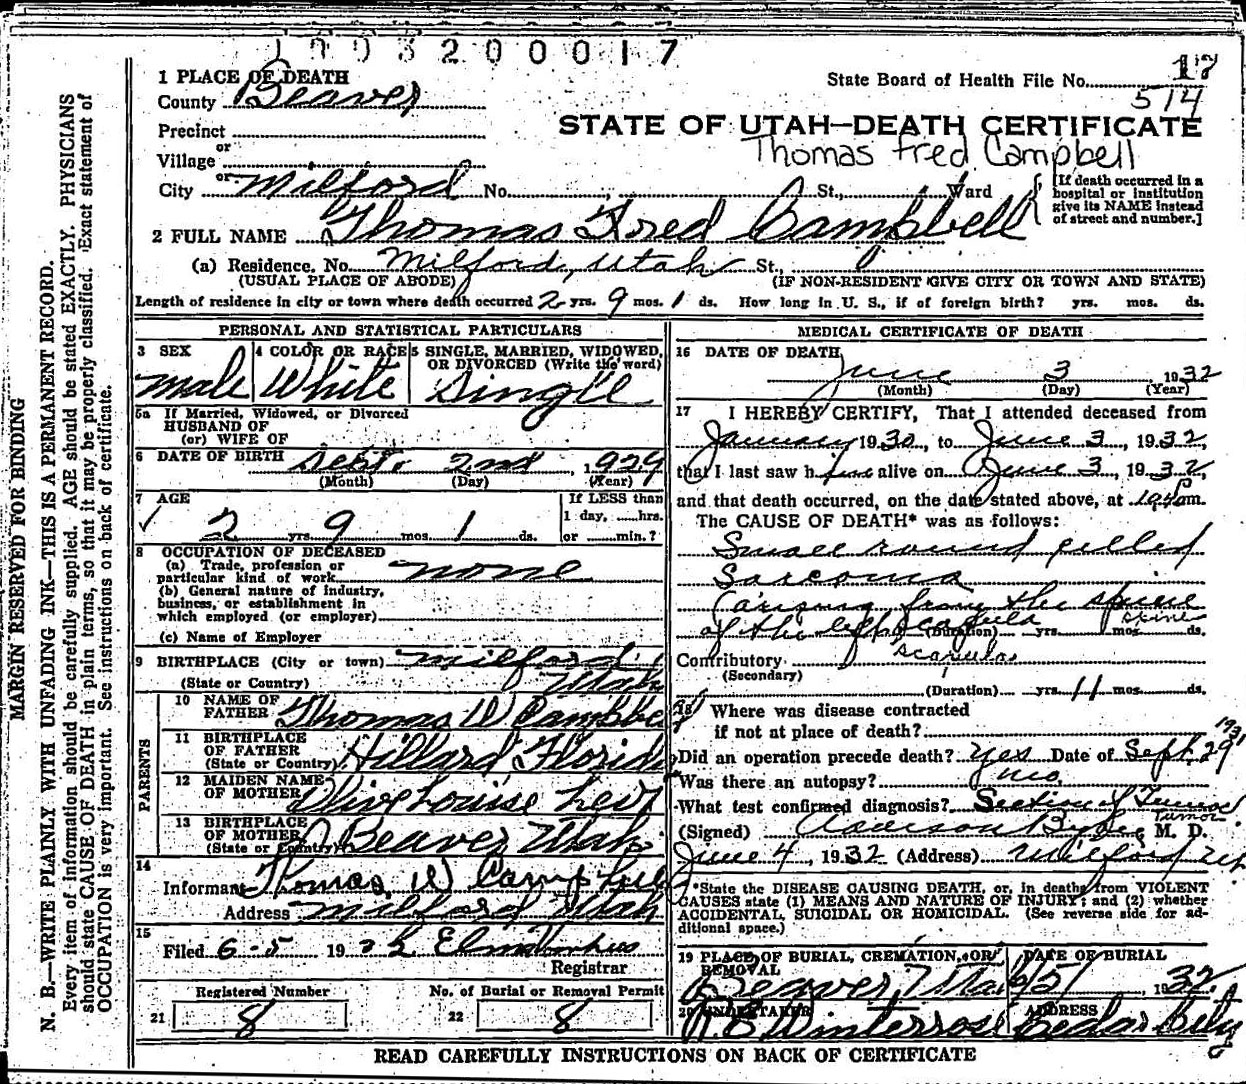 1003200017
1 PLACE OF DEATH
State Board of Health File No. 17
County Beaver
514
Precinct
STATE OF UTAH—DEATH CERTIFICATE
or
Village
Thomas Fred Campbell
or
City Milford No. St., Ward
[If death occurred in a
hospital or institution
give its NAME instead
of street and number.]
2 FULL NAME Thomas Fred Campbell
(a) Residence, No. Milford, Utah St.,
(USUAL PLACE OF ABODE) (IF NON-RESIDENT GIVE CITY OR TOWN AND STATE)
Length of residence in city or town where death occurred 2 yrs. 9 mos. 1 ds. How long in U. S., if of foreign birth? yrs. mos. ds.
PERSONAL AND STATISTICAL PARTICULARS
3 SEX
male
4 COLOR OR RACE
White
5 SINGLE, MARRIED, WIDOWED,
OR DIVORCED (Write the word)
Single
5a If Married, Widowed, or Divorced
HUSBAND OF
(or) WIFE OF
6 DATE OF BIRTH Sept. 2nd, 1929
(Month) (Day) (Year)
7 AGE
2 yrs. 9 mos. 1 ds.
If LESS than
1 day, hrs.
or min.?
8 OCCUPATION OF DECEASED
(a) Trade, profession or
particular kind of work none
(b) General nature of industry,
business, or establishment in
which employed (or employer)
(c) Name of Employer
9 BIRTHPLACE (City or town) Milford,
(State or Country) Utah
PARENTS
10 NAME OF
FATHER Thomas W Campbe
11 BIRTHPLACE
OF FATHER
(State or Country) Hillard, Florida
12 MAIDEN NAME
OF MOTHER Olive Louise Levi
13 BIRTHPLACE
OF MOTHER
(State or Country) Beaver Utah
14
Informant Thomas W Campbell
Address Milford Utah
15
Filed 6-5 1932
Registrar
Registered Number
21 8
No. of Burial or Removal Permit
22 8
MEDICAL CERTIFICATE OF DEATH
16 DATE OF DEATH
June 3, 1932
(Month) (Day) (Year)
17 I HEREBY CERTIFY, That I attended deceased from
January 1930, to June 3, 1932,
that I last saw him alive on June 3, 1932,
and that death occurred, on the date stated above, at m.
The CAUSE OF DEATH* was as follows:
Small round celled
Sarcoma
(arising from the spine
of the left scapula spine
(Duration) yrs. mos. ds.
Contributory scapula
(Secondary)
(Duration) yrs. 11 mos. ds.
18 Where was disease contracted
if not at place of death?
Did an operation precede death? yes Date of Sept. 29 1931
Was there an autopsy? no
What test confirmed diagnosis? Section of Tumor
Tumor
(Signed) M. D.
June 4, 1932 (Address) Milford Ut
*State the DISEASE CAUSING DEATH, or, in deaths from VIOLENT
CAUSES state (1) MEANS AND NATURE OF INJURY; and (2) whether
ACCIDENTAL, SUICIDAL OR HOMICIDAL. (See reverse side for ad-
ditional space.)
19 PLACE OF BURIAL, CREMATION, OR
REMOVAL
Beaver, Utah
DATE OF BURIAL
6/5, 1932
20 UNDERTAKER
Winterrose
ADDRESS
Cedar City
READ CAREFULLY INSTRUCTIONS ON BACK OF CERTIFICATE
MARGIN RESERVED FOR BINDING
N. B.—WRITE PLAINLY WITH UNFADING INK—THIS IS A PERMANENT RECORD.
Every item of information should be carefully supplied. AGE should be stated EXACTLY. PHYSICIANS
should state CAUSE OF DEATH in plain terms, so that it may be properly classified. Exact statement of
OCCUPATION is very important. See instructions on back of certificate.